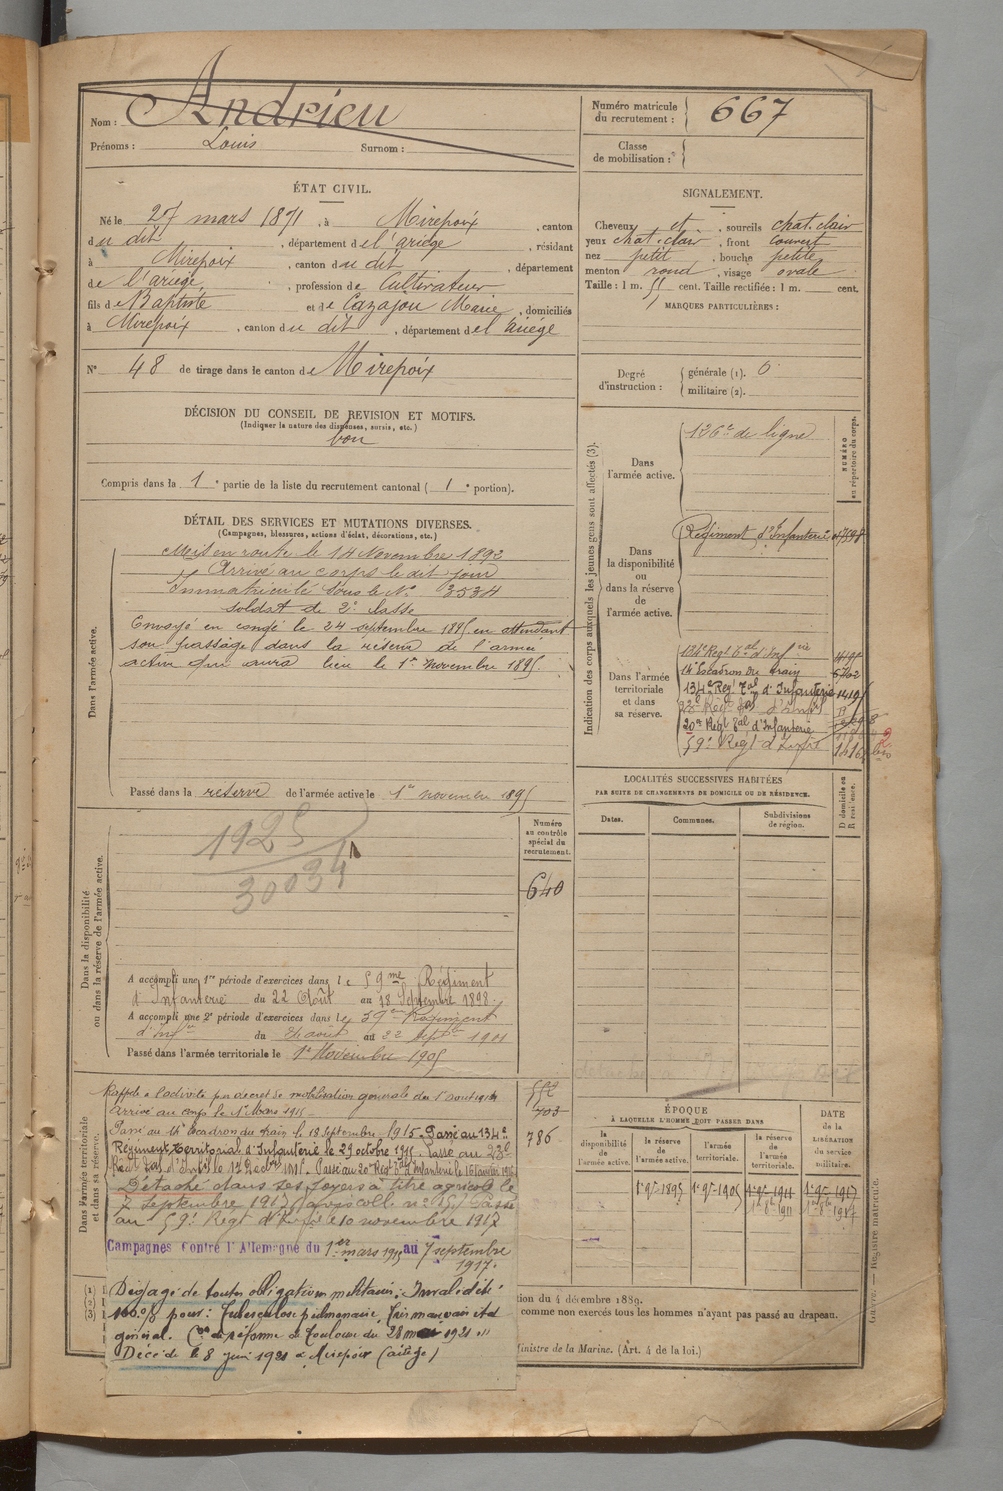 Nom : Andrieu
Prénoms : Louis Surnom :
Numéro matricule du recrutement : 667
Classe de mobilisation :
ÉTAT CIVIL.
Né le 27 mars 1871, à Mirepoix, canton
du dit, département de l'ariège, résidant
à Mirepoix, canton du dit, département
de l'ariège, profession de Cultivateur
fils de Baptiste et de Cazajou Marie, domiciliés
à Mirepoix, canton du dit, département de l'ariége
N° 48 de tirage dans le canton de Mirepoix
SIGNALEMENT.
Cheveux et, sourcils chat. clair
yeux chat. clair, front couvert
nez petit, bouche petite
menton rond, visage ovale
Taille : 1 m. 55 cent. Taille rectifiée : 1 m. cent.
MARQUES PARTICULIÈRES :
Degré d'instruction : générale (1). 0
militaire (2).
DÉCISION DU CONSEIL DE REVISION ET MOTIFS.
(Indiquer la nature des dispenses, sursis, etc.)
bon
Compris dans la 1e partie de la liste du recrutement cantonal (1e portion).
DÉTAIL DES SERVICES ET MUTATIONS DIVERSES.
(Campagnes, blessures, actions d'éclat, décorations, etc.)
Dans l'armée active.
Mis en route le 14 Novembre 1892
Arrivé au corps le dit jour
Immatriculé sous le N° 3534
soldat de 2e classe
Envoyé en congé le 24 septembre 1895 en attendant
son passage dans la réserve de l'armée
active qui aura lieu le 1er novembre 1895.
Passé dans la réserve de l'armée active le 1er novembre 1895
Indication des corps auxquels les jeunes gens sont affectés (3).
NUMÉRO au répertoire du corps.
Dans l'armée active.
126e de ligne
Dans la disponibilité ou dans la réserve de l'armée active.
Régiment d'Infanterie
Dans l'armée territoriale et dans sa réserve.
14e Escadron du train 5762
134e Régt Tal d'Infanterie 1419
20e Régt Tal d'Infanterie
59e Régt d'Infie
LOCALITÉS SUCCESSIVES HABITÉES
PAR SUITE DE CHANGEMENTS DE DOMICILE OU DE RÉSIDENCE.
Dates. Communes. Subdivisions de région. D domicile ou R résidence.
Dans la disponibilité ou dans la réserve de l'armée active.
Numéro au contrôle spécial du recrutement.
1925
30034
640
A accompli une 1re période d'exercices dans le 59me Régiment
d'Infanterie du 22 Août au 18 Septembre 1898.
A accompli une 2e période d'exercices dans le 59e Régiment
d'Infie du août au 22 Septbre 1901
Passé dans l'armée territoriale le 1er Novembre 1905
Dans l'armée territoriale et dans sa réserve.
552
703
786
Rappelé à l'activité par décret de mobilisation générale du 1er aout 1914
Arrivé au corps le 1er Mars 1915
Passé au 14e Escadron du train le 18 Septembre 1915. Passé au 134e
Régiment Territorial d'Infanterie le 29 octobre 1915. Passé au 23e
Passé au 20e Régt Tal d'Infanterie le
Détaché dans ses foyers à titre agricole le
7 septembre 1917 Passé
au 59e Régt d'Infie le 10 novembre 1917
Campagnes Contre l'Allemagne du 1er mars 1915 au 7 septembre
1917.
Dégagé de toutes obligations militaires. Invalidité
100 % pour : Tuberculose pulmonaire, très mauvais état
général. Con de réforme de Toulouse du 28 mai 1921
Décédé le 8 juin 1921 à Mirepoix (ariège)
ÉPOQUE
À LAQUELLE L'HOMME DOIT PASSER DANS
la disponibilité de l'armée active. la réserve de l'armée active. l'armée territoriale. la réserve de l'armée territoriale.
DATE de la LIBÉRATION DU SERVICE militaire.
1er 9bre 1895 1er 9bre 1905 1er 9bre 1911 1er 9bre 1917
tion du 4 décembre 1889.
comme non exercés tous les hommes n'ayant pas passé au drapeau.
Ministre de la Marine. (Art. 4 de la loi.)
— Registre matricule.